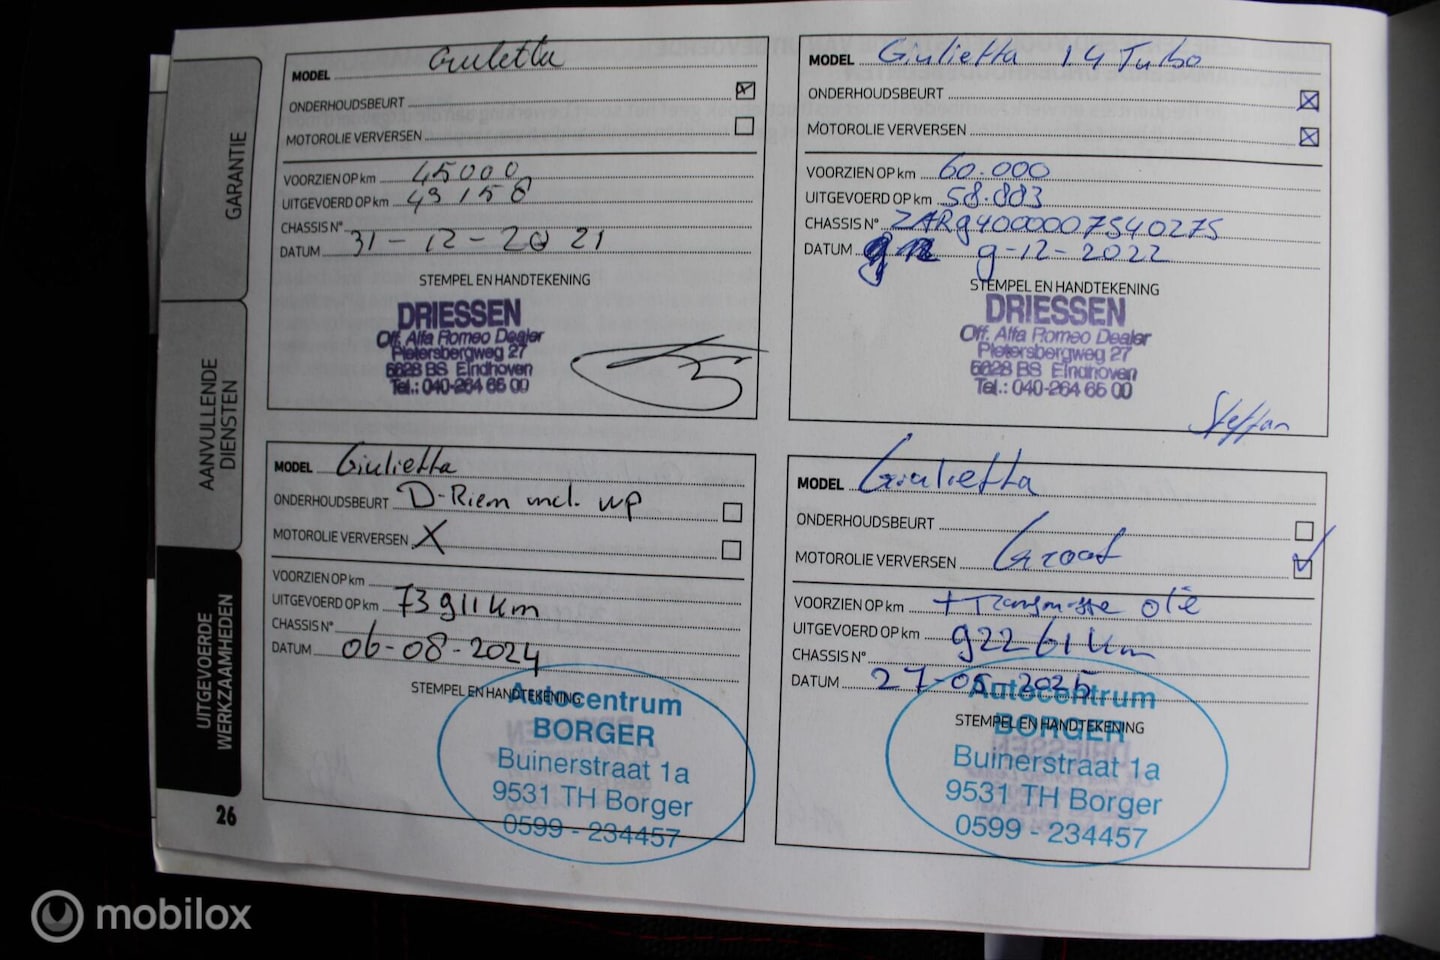 GARANTIE
AANVULLENDE
DIENSTEN
UITGEVOERDE
WERKZAAMHEDEN
26
MODEL Giuletta
ONDERHOUDSBEURT
MOTOROLIE VERVERSEN
VOORZIEN OP km 45000
UITGEVOERD OP km 43156
CHASSIS N°
DATUM 31-12-2021
STEMPEL EN HANDTEKENING
DRIESSEN
Off. Alfa Romeo Dealer
Pietersbergweg 27
5628 BS Eindhoven
Tel.: 040-264 65 00
MODEL Giulietta 1.4 Turbo
ONDERHOUDSBEURT
MOTOROLIE VERVERSEN
VOORZIEN OP km 60.000
UITGEVOERD OP km 58.883
CHASSIS N° ZARg4000007540275
DATUM 9-12-2022
STEMPEL EN HANDTEKENING
DRIESSEN
Off. Alfa Romeo Dealer
Pietersbergweg 27
5628 BS Eindhoven
Tel.: 040-264 65 00
Steffan
MODEL Giulietta
ONDERHOUDSBEURT D-Riem incl. wp
MOTOROLIE VERVERSEN X
VOORZIEN OP km
UITGEVOERD OP km 73911 km
CHASSIS N°
DATUM 06-08-2024
STEMPEL EN HANDTEKENING
Autocentrum
BORGER
Buinerstraat 1a
9531 TH Borger
0599 - 234457
MODEL Giulietta
ONDERHOUDSBEURT
MOTOROLIE VERVERSEN Groot
VOORZIEN OP km + Transmissie olie
UITGEVOERD OP km 92261 km
CHASSIS N°
DATUM 27-05-2025
STEMPEL EN HANDTEKENING
Autocentrum
BORGER
Buinerstraat 1a
9531 TH Borger
0599 - 234457
mobilox